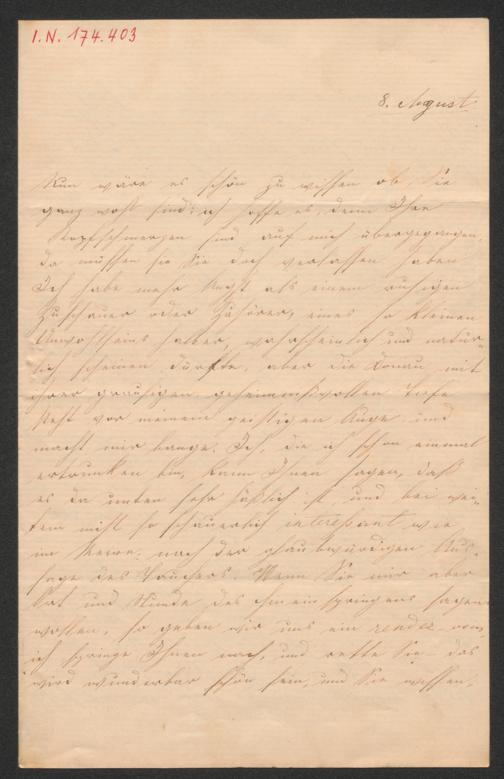 I.N. 174.403
8. August
Nun wäre es schön zu wissen ob Sie
ganz wohl sind; ich hoffe es, denn Ihre
Kopfschmerzen sind auf mich übergegangen,
da müssen sie Sie doch verlassen haben
Ich habe mehr Angst als einem ruhigen
Zuschauer oder Zuhörer, eines so kleinen
Unwohlseins halber, wahrscheinlich und natür-
lich scheinen dürfte, aber die Donau mit
ihrer grausigen geheimnißvollen Tiefe
steht vor meinem geistigen Auge und
macht mir bange. Ich, die ich schon einmal
ertrunken bin, kann Ihnen sagen, daß
es da unten sehr häßlich ist und bei wei-
tem nicht so schauerlich interessant wie
im Meere, nach der glaubwürdigen Aus-
sage des Tauchers. Wenn Sie mir aber
Ort und Stunde des hineinspringens sagen
wollen, so geben wir uns ein rendez-vous,
ich springe Ihnen nach, und rette Sie – das
wird wunderbar schön sein, und Sie